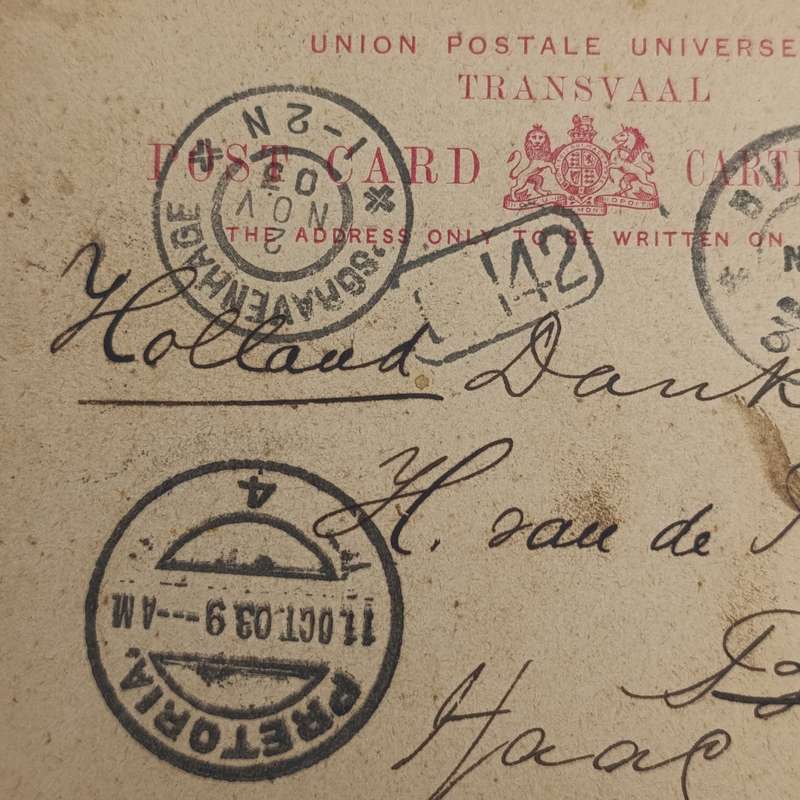 UNION POSTALE UNIVERSE
TRANSVAAL
POST CARD CARTE
THE ADDRESS ONLY TO BE WRITTEN ON
'SGRAVENHAGE
1-2 N
2
NOV
03
142
Holland
H. van de
Haag
PRETORIA.
11.OCT.03 9---AM
4